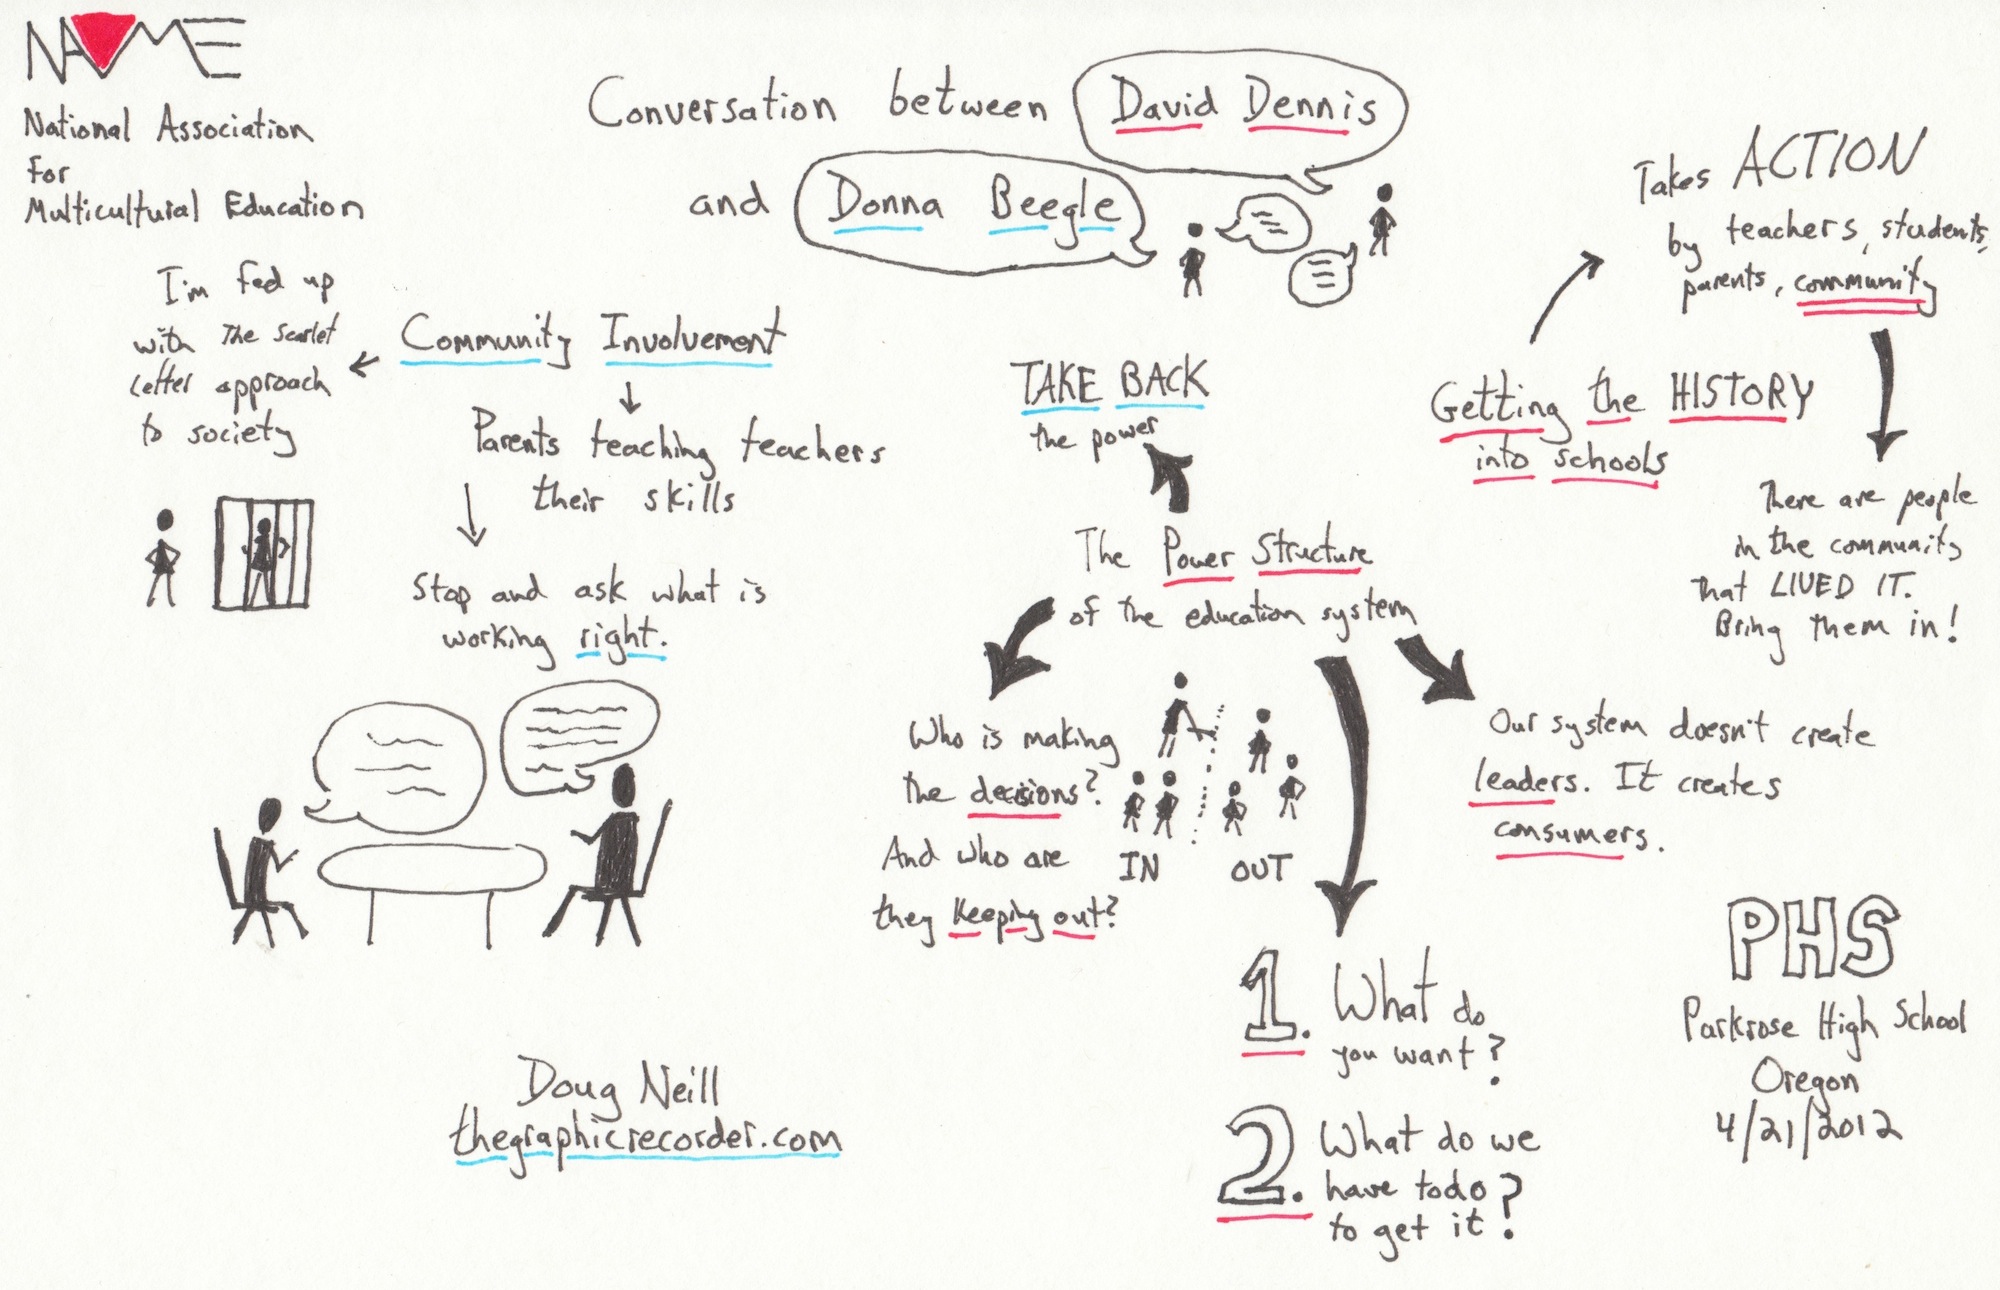 NAME
National Association
for
Multicultural Education
Conversation between David Dennis
and Donna Beegle
I'm fed up
with The Scarlet
Letter approach
to society
Community Involvement
Parents teaching teachers
their skills
Stop and ask what is
working right.
TAKE BACK
the power
The Power Structure
of the education system
Who is making
the decisions?
And who are
they keeping out?
IN OUT
1. What do
you want?
2. What do we
have to do
to get it?
Our system doesn't create
leaders. It creates
consumers.
Getting the HISTORY
into schools
Takes ACTION
by teachers, students,
parents, community
There are people
in the community
that LIVED IT.
Bring them in!
Doug Neill
thegraphicrecorder.com
PHS
Parkrose High School
Oregon
4/21/2012